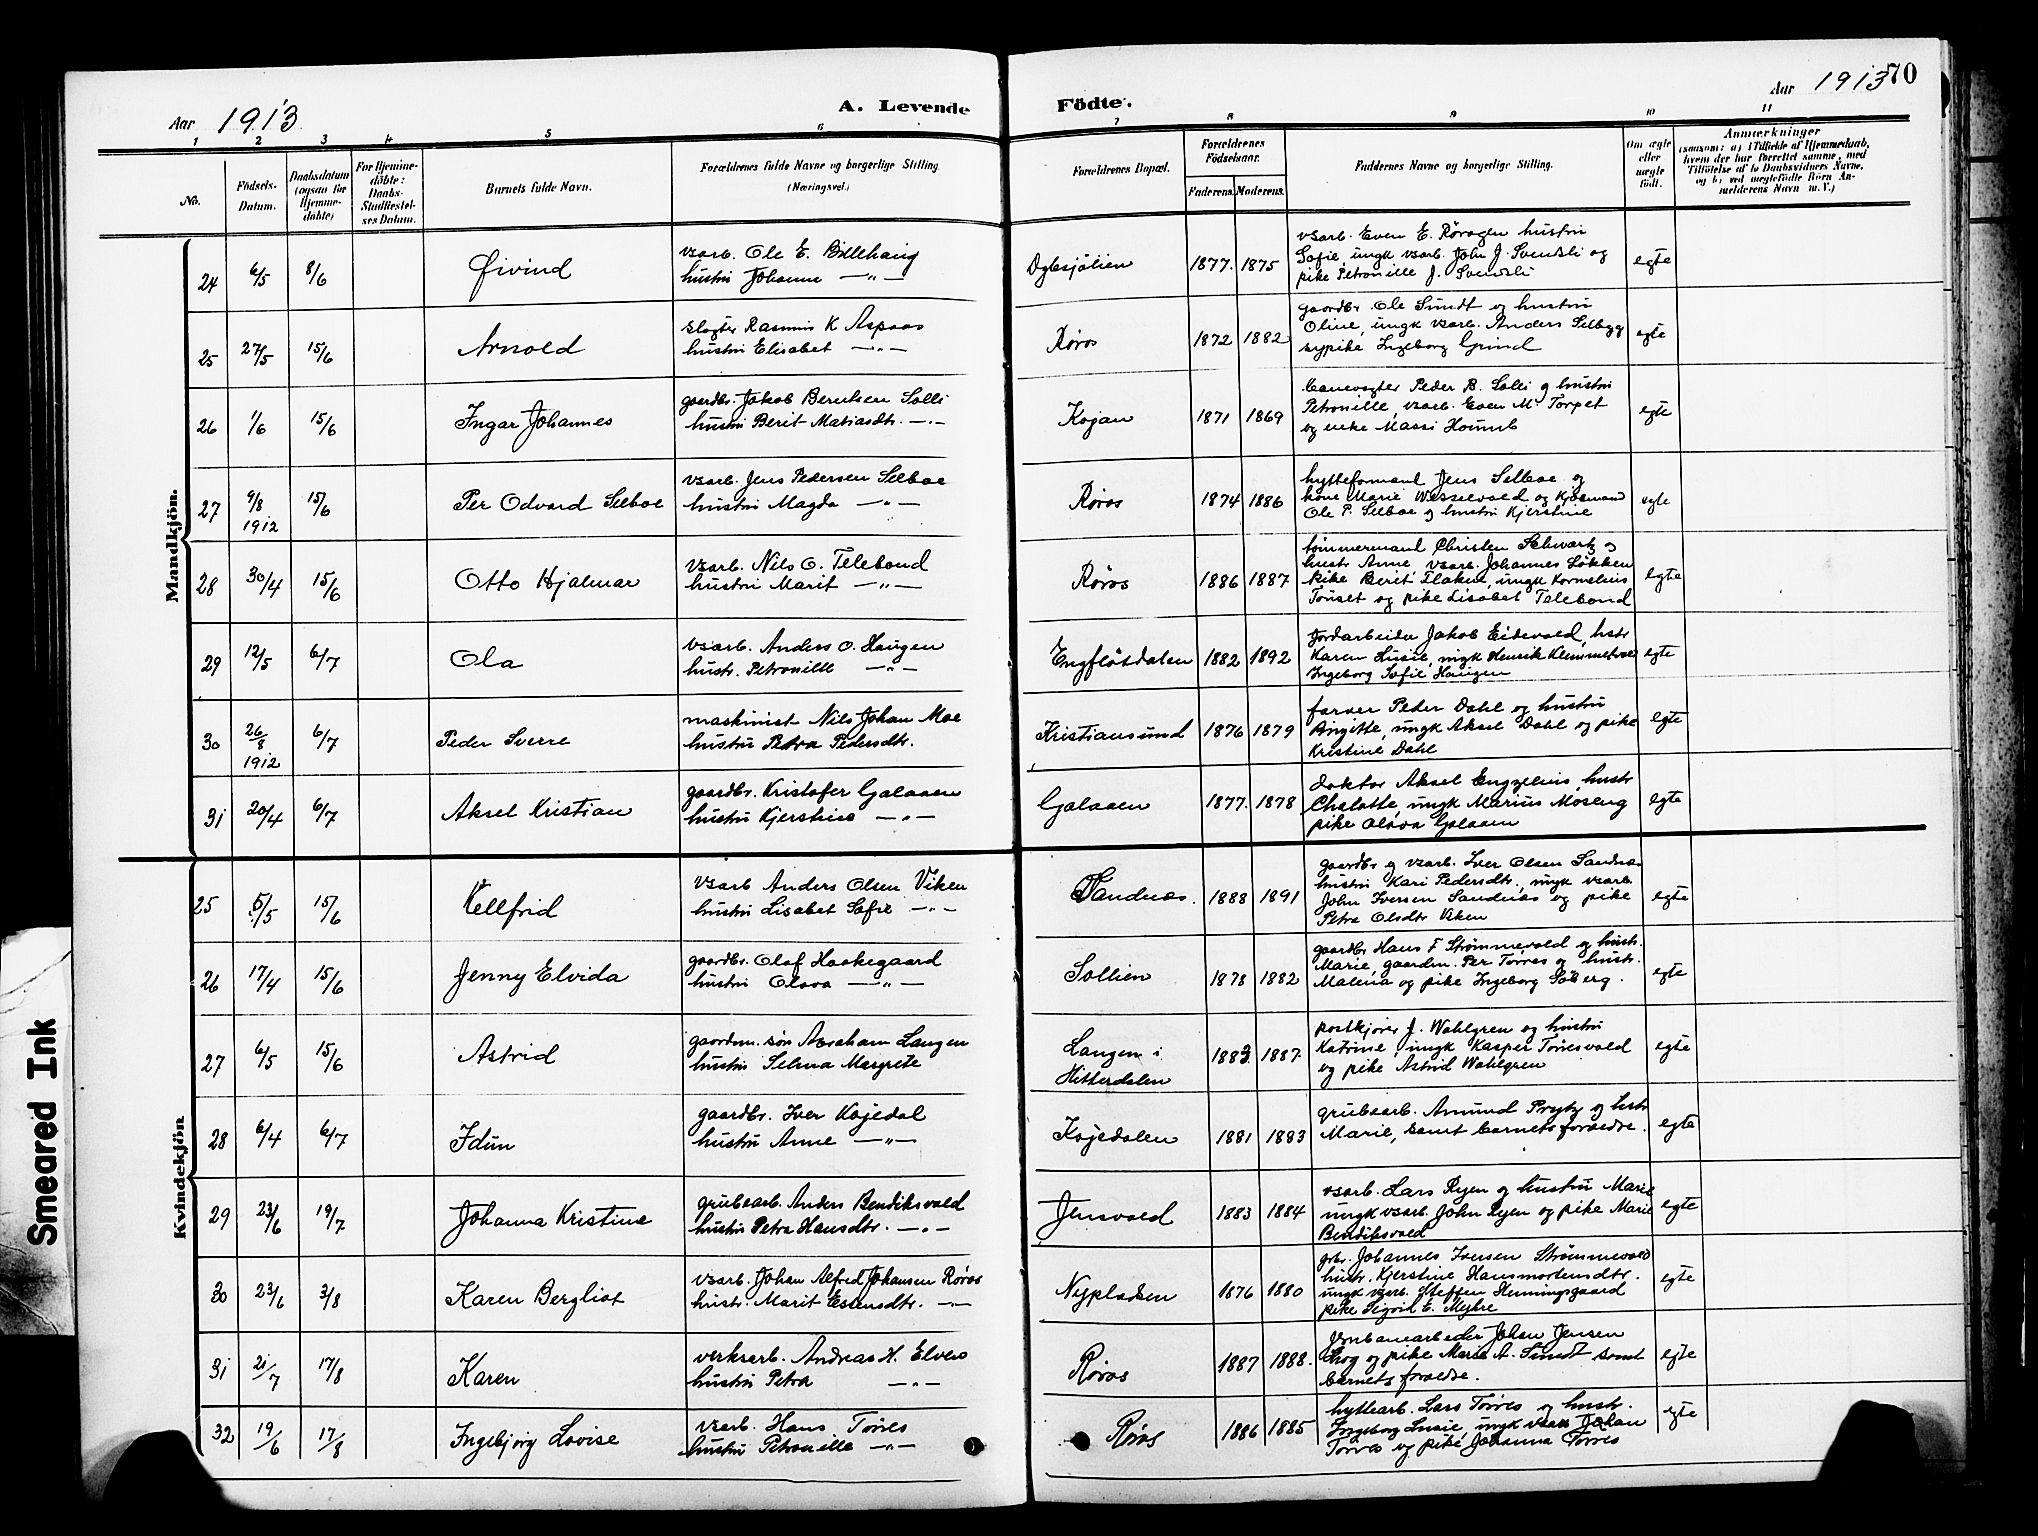 70
Aar 1913
A. Levende
Födte.
Aar 1913
1 2 3 4 5 6 7 8 9 10 11
No.
Födsels-
Datum.
Daabsdatum
(ogsaa for
Hjemme-
döbte)
For Hjemme-
döbte:
Daabs-
Stadfæstel-
ses Datum.
Barnets fulde Navn.
Forældrenes fulde Navne og borgerlige Stilling.
(Næringsvei.)
Forældrenes Bopæl.
Forældrenes
Födselsaar.
Faderens. Moderens.
Faddernes Navne og borgerlige Stilling.
Om ægte
eller
uægte
födt.
Anmærkninger
(saasom: a) i Tilfælde af Hjemmedaab,
hvem der har forrettet samme, med
Tilföielse af to Daabsvidners Navne,
og b) ved uægtefödte Börn An-
melderens Navn m. V.)
Mandkjön.
24 6/5 8/6 Øivind
vsarb. Ole E. Billehaug
hustru Johanne —"—
1877. 1875
vsarb. Even E. Røragen hustru
Sofie, ungk vsarb. John J. Svendsli og
pike Petronille J. Svendsli
egte
25 27/5 15/6 Arnold
slagter Rasmus K Aspaas
hustru Elisabet —"—
Røros 1872 1882
gaardbr. Ole Sundt og hustru
Oline, ungk vsarb. Anders Selbygg
sypike Ingeborg Grind
egte
26 1/6 15/6 Ingar Johannes
gaardbr. Jakob Berntsen Solli
hustru Berit Matiasdtr. —"—
Kojan 1871 1869
banevogter Peder B. Solli og hustru
Petronille, vsarb. Even M. Torpet
og enke Massi Houmb
egte
27 9/8 1912 15/6 Per Odvard Selboe
vsarb. Jens Pedersen Selboe
hustru Magda —"—
Røros 1874 1886
hytteformand Jens Selboe og
kone Marie Wesselvold og Kjøbmand
Ole P. Selboe og hustru Kjerstine
egte
28 30/4 15/6 Otto Hjalmar
vsarb. Nils O. Telebond
hustru Marit —"—
Røros 1886 1887
tømmermand Christen Schwartz og
hustr Anne, vsarb. Johannes Løkken
pike Berit Flaken, ungk Kornelius
Tønset og pike Lisabet Telebond
egte
29 12/5 6/7 Ola
vsarb. Anders O. Haugen
hustr. Petronille —"—
Engfløtdalen 1882 1892
Jordarbeider Jakob Eidevold, hstr
Karen Lusie, ungk Henrik Klemmetvold
Ingeborg Sofie Haugen
egte
30 26/8 1912 6/7 Peder Sverre
maskinist Nils Johan Moe
hustru Petra Pedersdtr.
Kristiansund 1876 1879
farver Peder Dahl og hustru
Birgitte, ungk Aksel Dahl og pike
Kristine Dahl
egte
31 20/4 6/7 Aksel Kristian
gaardbr. Kristofer Galaaen
hustru Kjerstine —"—
Galaaen 1877. 1878
Doktor Aksel Engzelius, hustr
Chalotte, ungk Marius Moseng
pike Olava Galaaen
egte
Kvindekjön
25 5/5 15/6 Kellfrid
vsarb Anders Olsen Viken
hustru Lisabet Sofie —"—
Sandnæs. 1888 1891
gaardbr og vsarb. Iver Olsen Sandnæs
hustru Kari Pedersdtr., ungk vsarb.
John Iversen Sandnæs og pike
Petra Olsdtr Viken
egte
26 17/4 15/6 Jenny Elvida
gaardbr. Olaf Haakegaard
hustru Olava —"—
Sollien 1878 1882
gaardbr Hans F Strømmevold og hustr.
Marie, gaardm. Per Tørres og hustr.
Malena og pike Ingeborg Søberg.
egte
27 6/5 15/6 Astrid
gaardm. søn Abraham Langen
hustru Selma Margrete
Langen i
Hitterdalen
1883 1887.
postkjører J. Wahlgren og hustru
Katrine, ungk Kasper Tørresvold
og pike Astrid Wahlgren
egte
28 6/4 6/7 Idun
gaardbr. Iver Kojedal
hustru Anne —"—
Kojedalen 1881 1883
grubearb. Amund Prytz og hstr
Marie, samt barnets foreldre.
egte
29 23/6 19/7 Johanna Kristine
grubearb. Anders Bendiksvold
hustru Petra Hansdtr. —"—
Jensvold 1883 1884
vsarb. Lars Ryen og hustru Marie
ungk vsarb. John Ryen og pike Marie
Bendiksvold
egte
30 23/6 3/8 Karen Bergliot
vsarb. Johan Alfred Johansen Røros
hustr. Marit Estensdtr. —"—
Nypladsen 1876 1880
gbr. Johannes Iversen Strømmevold
hustr. Kjerstine Hansmortensdtr.
ungk vsarb. Steffen Henningsgaard
pike Sigrid E. Myhre
egte
31 21/7 17/8 Karen
verksarb. Andreas H. Elven
hustru Petra —"—
Røros 1887 1888.
Jernbanearbeider Johan Jensen
Skog og pike Marie A. Sundt samt
barnets foreldre.
egte
32 19/6 17/8 Ingebjørg Lovise
vsarb. Hans Tørres
hustru Petronille —"—
Røros 1886 1885
hyttearb. Lars Tørres og hustr.
Ingeborg Lusie, ungk vsarb Johan
Tørres og pike Johanna Tørres
egte
Smeared Ink